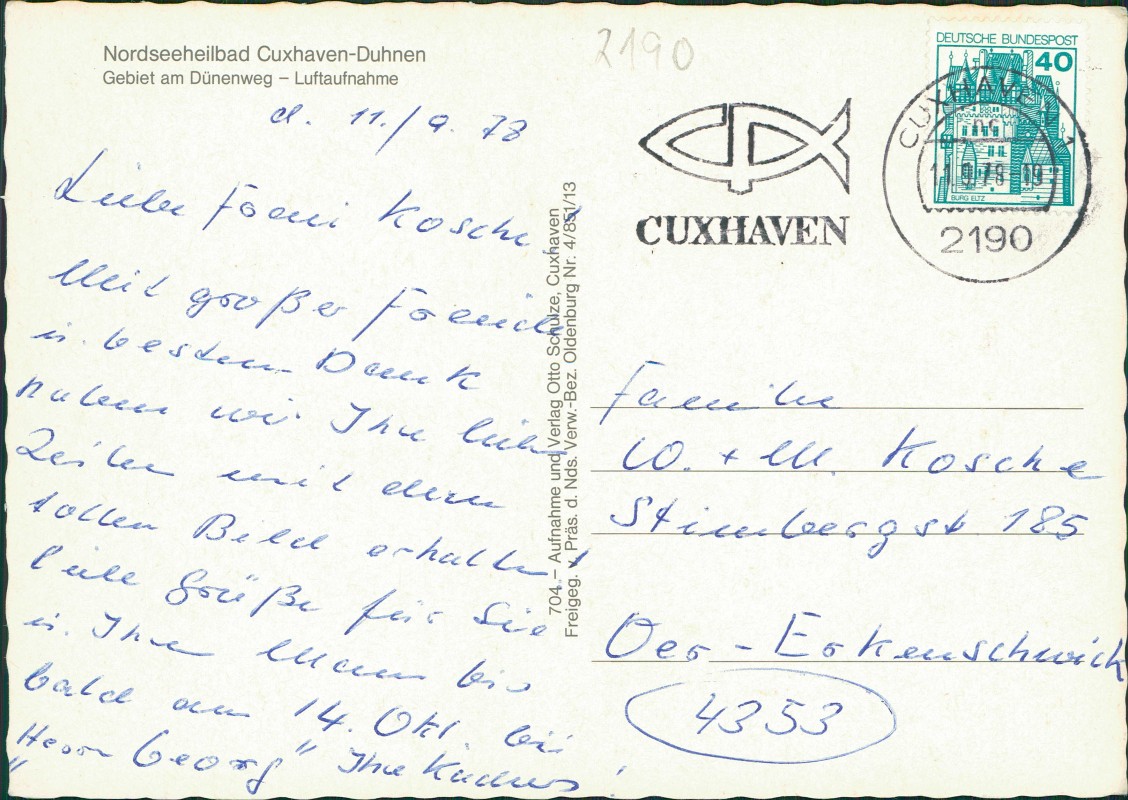 Nordseeheilbad Cuxhaven-Duhnen
Gebiet am Dünenweg – Luftaufnahme
d. 11./9. 78
Liebe Frau Kosche
Mit großer Freude
u. besten Dank
haben wir Ihre lieben
Zeilen mit dem
tollen Bild erhalten!
liebe Grüße für Sie
u. Ihre Mann bis
bald am 14. Okt. bei
"Herrn Georg" Ihre
704.– Aufnahme und Verlag Otto Schulze, Cuxhaven
Freigeg. v. Präs. d. Nds. Verw.-Bez. Oldenburg Nr. 4/851/13
2190
CUXHAVEN
DEUTSCHE BUNDESPOST
40
BURG ELTZ
CUXHAVEN 1
11.9.78-19
2190
Familie
W. + M. Kosche
Stimbergst 185
Oer-Erkenschwick
4353